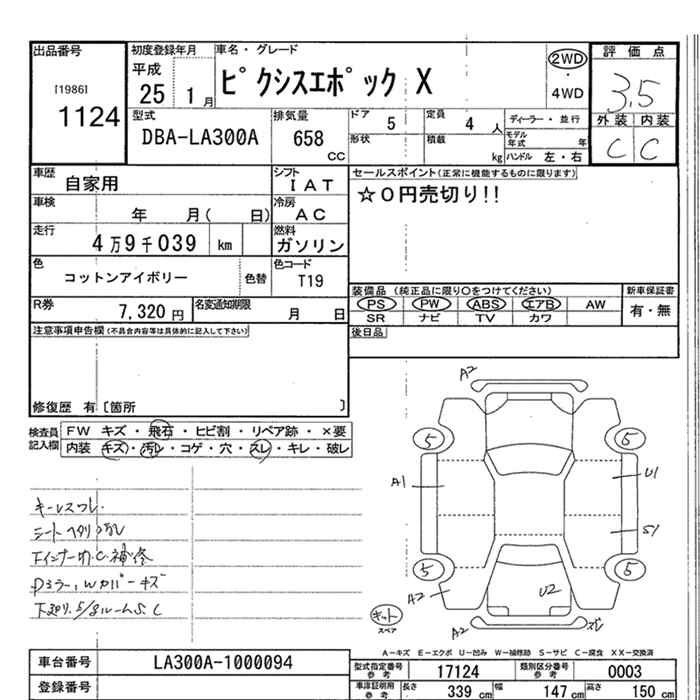 出品番号 [1986] 1124
初度登録年月 平成 25 1月
車名・グレード ピクシスエポック X
2WD・4WD
評価点 3.5
外装 C 内装 C
型式 DBA-LA300A
排気量 658 CC
ドア 5 定員 4 人
形状 積載 kg
ディーラー・並行
モデル年式 年
ハンドル 左・右
車歴 自家用
シフト IAT
車検 年 月( 日)
冷房 AC
走行 4万9千039 km
燃料 ガソリン
色 コットンアイボリー 色替
色コード T19
R券 7,320 円
名変通知期限 月 日
セールスポイント(正常に機能するものに限ります)
☆0円売切り!!
装備品 (純正品に限り○をつけてください)
PS PW ABS エアB AW
SR ナビ TV カワ
新車保証書 有・無
後日品
注意事項申告欄(不具合内容等は具体的に記入して下さい)
修復歴 有[箇所 ]
検査員記入欄
FW キズ・飛石・ヒビ割・リペア跡・×要
内装 キズ・汚レ・コゲ・穴・スレ・キレ・破レ
キーレスワレ.
シートヘタリ 汚レ
C補修
Dミラー, Wカバーキズ
下廻り.S/SルームS.C
A2
5 5
A1 U1
S1
5 5
A2 U2
キット スペア
A2 ズレ
A-キズ E-エクボ U-凹み W-補修跡 S-サビ C-腐食 XX-交換済
車台番号 LA300A-1000094
登録番号
型式指定番号 参考 17124
類別区分番号 参考 0003
車庫証明用 参考 長さ 339 cm 幅 147 cm 高さ 150 cm